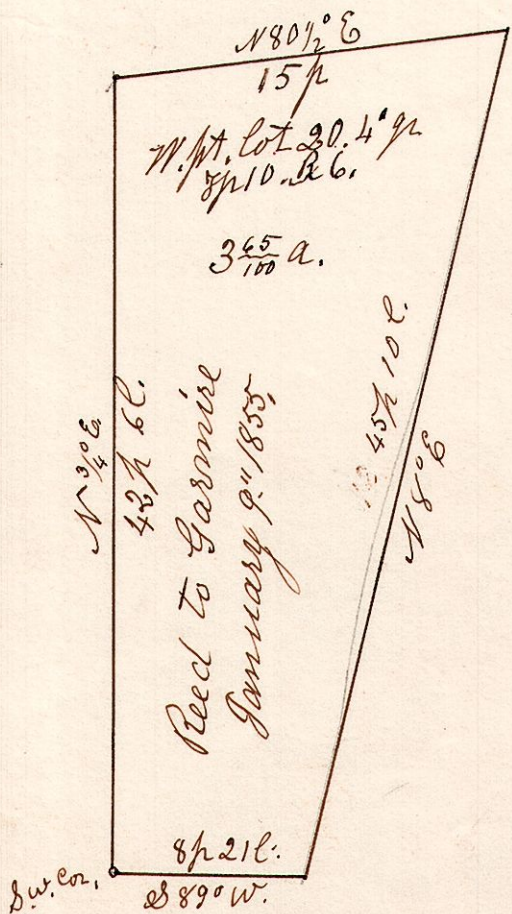 N 80 1/2° E
15 p
W. pt. lot 20. 4" qr
Tp 10. R 6.
3 65/100 a.
N 3/4° E.
42 p 6 l.
Reed to Garmire
January 9." 1855,
45 p 10 l.
N 8° E
8 p 21 l.
S 89° W.
S.W. Cor.